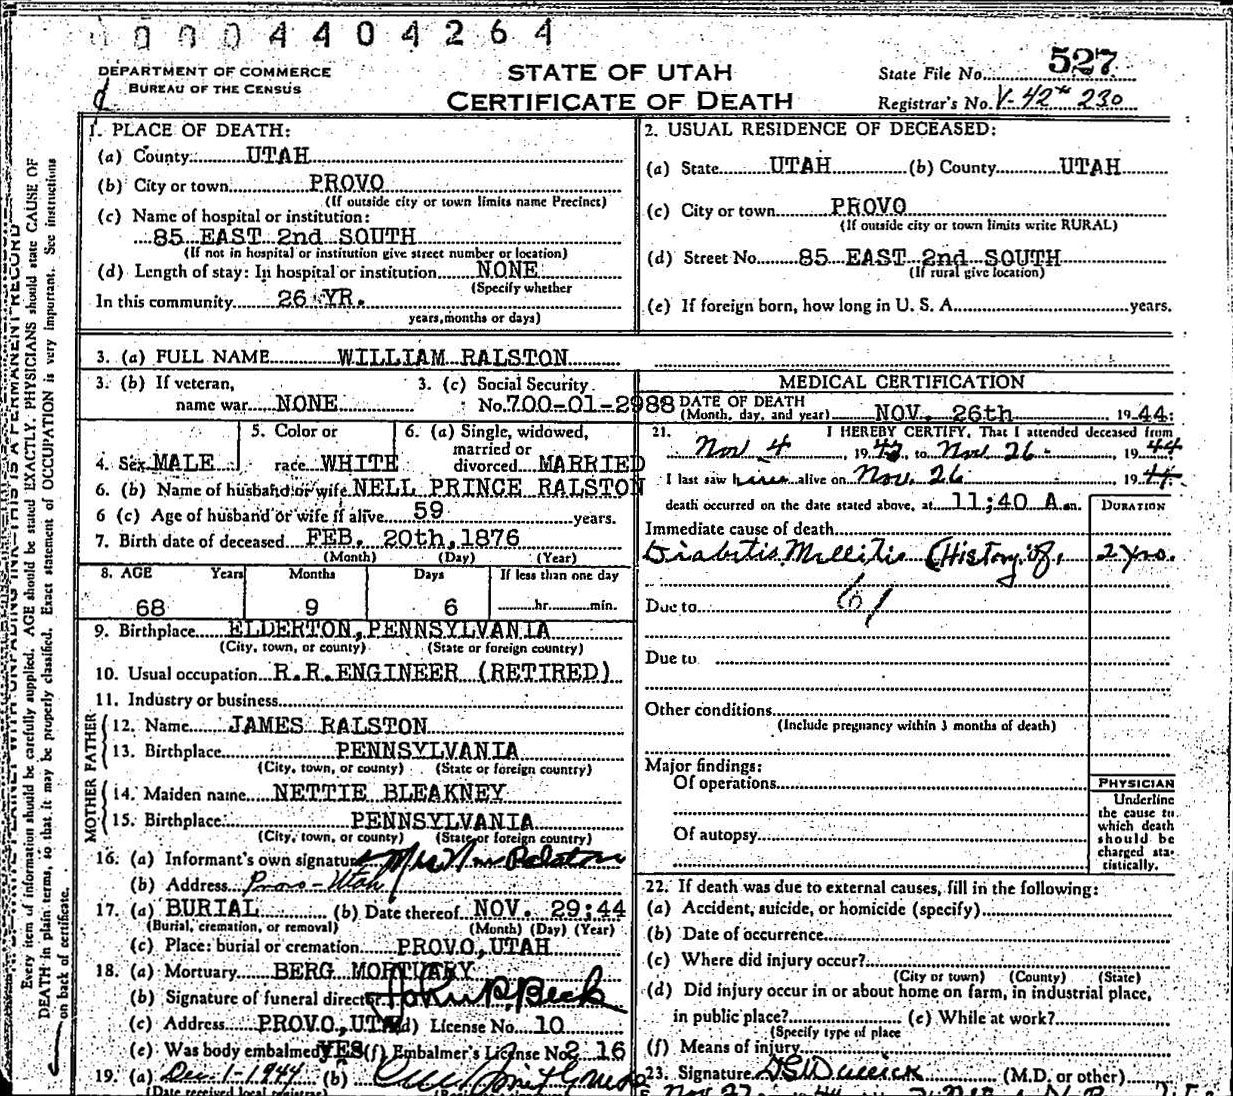 00004404264
DEPARTMENT OF COMMERCE
BUREAU OF THE CENSUS
STATE OF UTAH
CERTIFICATE OF DEATH
State File No. 527
Registrar's No. V-42* 230
1. PLACE OF DEATH:
(a) County UTAH
(b) City or town PROVO
(If outside city or town limits name Precinct)
(c) Name of hospital or institution:
85 EAST 2nd SOUTH
(If not in hospital or institution give street number or location)
(d) Length of stay: In hospital or institution NONE
(Specify whether
In this community 26 YR.
years, months or days)
2. USUAL RESIDENCE OF DECEASED:
(a) State UTAH (b) County UTAH
(c) City or town PROVO
(If outside city or town limits write RURAL)
(d) Street No. 85 EAST 2nd SOUTH
(If rural give location)
(e) If foreign born, how long in U. S. A. years.
3. (a) FULL NAME WILLIAM RALSTON
3. (b) If veteran, name war NONE
3. (c) Social Security No. 700-01-2988
4. Sex MALE
5. Color or race WHITE
6. (a) Single, widowed, married or divorced MARRIED
6. (b) Name of husband or wife NELL PRINCE RALSTON
6 (c) Age of husband or wife if alive 59 years.
7. Birth date of deceased FEB. 20th, 1876
(Month) (Day) (Year)
8. AGE Years Months Days If less than one day
68 9 6 hr. min.
9. Birthplace ELDERTON, PENNSYLVANIA
(City, town, or county) (State or foreign country)
10. Usual occupation R.R. ENGINEER (RETIRED)
11. Industry or business
FATHER
12. Name JAMES RALSTON
13. Birthplace PENNSYLVANIA
(City, town, or county) (State or foreign country)
MOTHER
14. Maiden name NETTIE BLEAKNEY
15. Birthplace PENNSYLVANIA
(City, town, or county) (State or foreign country)
16. (a) Informant's own signature Mrs Wm Ralston
(b) Address Provo - Utah
17. (a) BURIAL (b) Date thereof NOV. 29:44
(Burial, cremation, or removal) (Month) (Day) (Year)
(c) Place: burial or cremation PROVO, UTAH
18. (a) Mortuary BERG MORTUARY
(b) Signature of funeral director Beck
(c) Address PROVO, UTAH (d) License No. 10
(e) Was body embalmed YES (f) Embalmer's License No. 216
19. (a) Dec 1-1944 (b)
(Date received local registrar)
MEDICAL CERTIFICATION
DATE OF DEATH
(Month, day, and year) NOV. 26th 1944:
21. I HEREBY CERTIFY, That I attended deceased from
Nov 4, 1943, to Nov 26 - 1944
I last saw h alive on Nov. 26 1944.
death occurred on the date stated above, at 11:40 A m.
DURATION
Immediate cause of death
Diabetis Millitis (History of, 2 yrs.
Due to 61
Due to
Other conditions
(Include pregnancy within 3 months of death)
Major findings:
Of operations
Of autopsy
PHYSICIAN
Underline
the cause to
which death
should be
charged sta-
tistically.
22. If death was due to external causes, fill in the following:
(a) Accident, suicide, or homicide (specify)
(b) Date of occurrence
(c) Where did injury occur?
(City or town) (County) (State)
(d) Did injury occur in or about home on farm, in industrial place,
in public place? (e) While at work?
(Specify type of place
(f) Means of injury
23. Signature (M.D. or other)
Nov 27
Every item of information should be carefully supplied. AGE should be stated EXACTLY. PHYSICIANS should state CAUSE OF
DEATH in plain terms, so that it may be properly classified. Exact statement of OCCUPATION is very important. See instructions
on back of certificate.